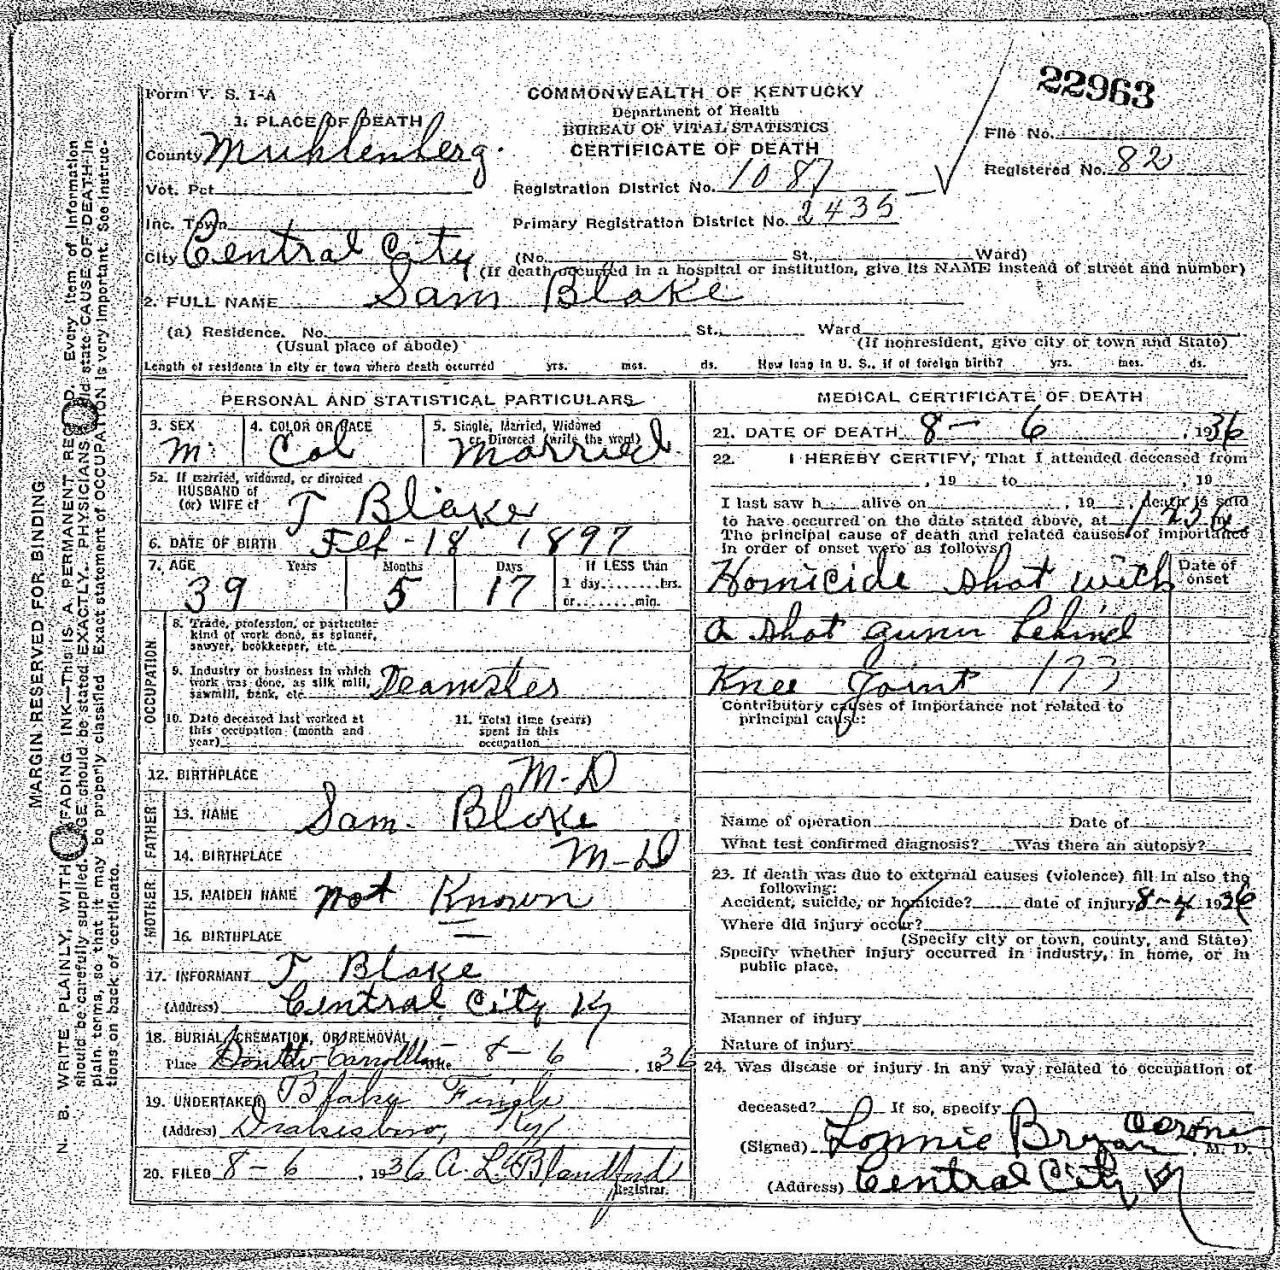 22963
Form V. S. 1-A
COMMONWEALTH OF KENTUCKY
Department of Health
BUREAU OF VITAL STATISTICS
CERTIFICATE OF DEATH
File No.
Registered No. 82
1. PLACE OF DEATH
County Muhlenberg.
Vot. Pct.
Registration District No. 1087
Inc. Town
Primary Registration District No. 2435
City Central City
(No. St., Ward)
(If death occurred in a hospital or institution, give its NAME instead of street and number)
2. FULL NAME Sam Blake
(a) Residence. No. St., Ward
(Usual place of abode)
(If nonresident, give city or town and State)
Length of residence in city or town where death occurred yrs. mos. ds. How long in U. S., if of foreign birth? yrs. mos. ds.
PERSONAL AND STATISTICAL PARTICULARS
3. SEX
M.
4. COLOR OR RACE
Col
5. Single, Married, Widowed
or Divorced (write the word)
Married
5a. If married, widowed, or divorced
HUSBAND of
(or) WIFE of Blake
6. DATE OF BIRTH Feb-18 1897
7. AGE Years Months Days If LESS than
1 day, hrs.
or min.
39 5 17
OCCUPATION
8. Trade, profession, or particular
kind of work done, as spinner,
sawyer, bookkeeper, etc.
9. Industry or business in which
work was done, as silk mill,
sawmill, bank, etc. Teamster
10. Date deceased last worked at
this occupation (month and
year)
11. Total time (years)
spent in this
occupation
12. BIRTHPLACE M-D
FATHER
13. NAME Sam. Blake
14. BIRTHPLACE M-D
MOTHER
15. MAIDEN NAME not Known
16. BIRTHPLACE —
17. INFORMANT Blake
(Address) Central City Ky
18. BURIAL, CREMATION, OR REMOVAL
Place Date 8-6, 1936
19. UNDERTAKER
(Address) Drakesboro, Ky
20. FILED 8-6, 1936 A. L. Blandford
Registrar.
MEDICAL CERTIFICATE OF DEATH
21. DATE OF DEATH 8- 6, 1936
22. I HEREBY CERTIFY, That I attended deceased from
, 19 to , 19
I last saw h alive on , 19 , death is said
to have occurred on the date stated above, at m.
The principal cause of death and related causes of importance
in order of onset were as follows:
Date of
onset
Homicide shot with
a shot gunn behind
Knee Joint 173
Contributory causes of importance not related to
principal cause:
Name of operation Date of
What test confirmed diagnosis? Was there an autopsy?
23. If death was due to external causes (violence) fill in also the
following:
Accident, suicide, or homicide? date of injury 8-4 1936
Where did injury occur?
(Specify city or town, county, and State)
Specify whether injury occurred in industry, in home, or in
public place.
Manner of injury
Nature of injury
24. Was disease or injury in any way related to occupation of
deceased? If so, specify
(Signed) Lonnie Bryan Corone, M. D.
(Address) Central City Ky
MARGIN RESERVED FOR BINDING
N. B. WRITE PLAINLY, WITH UNFADING INK—THIS IS A PERMANENT RECORD. Every item of information
should be carefully supplied. AGE should be stated EXACTLY. PHYSICIANS should state CAUSE OF DEATH in
plain terms, so that it may be properly classified. Exact statement of OCCUPATION is very important. See instruc-
tions on back of certificate.